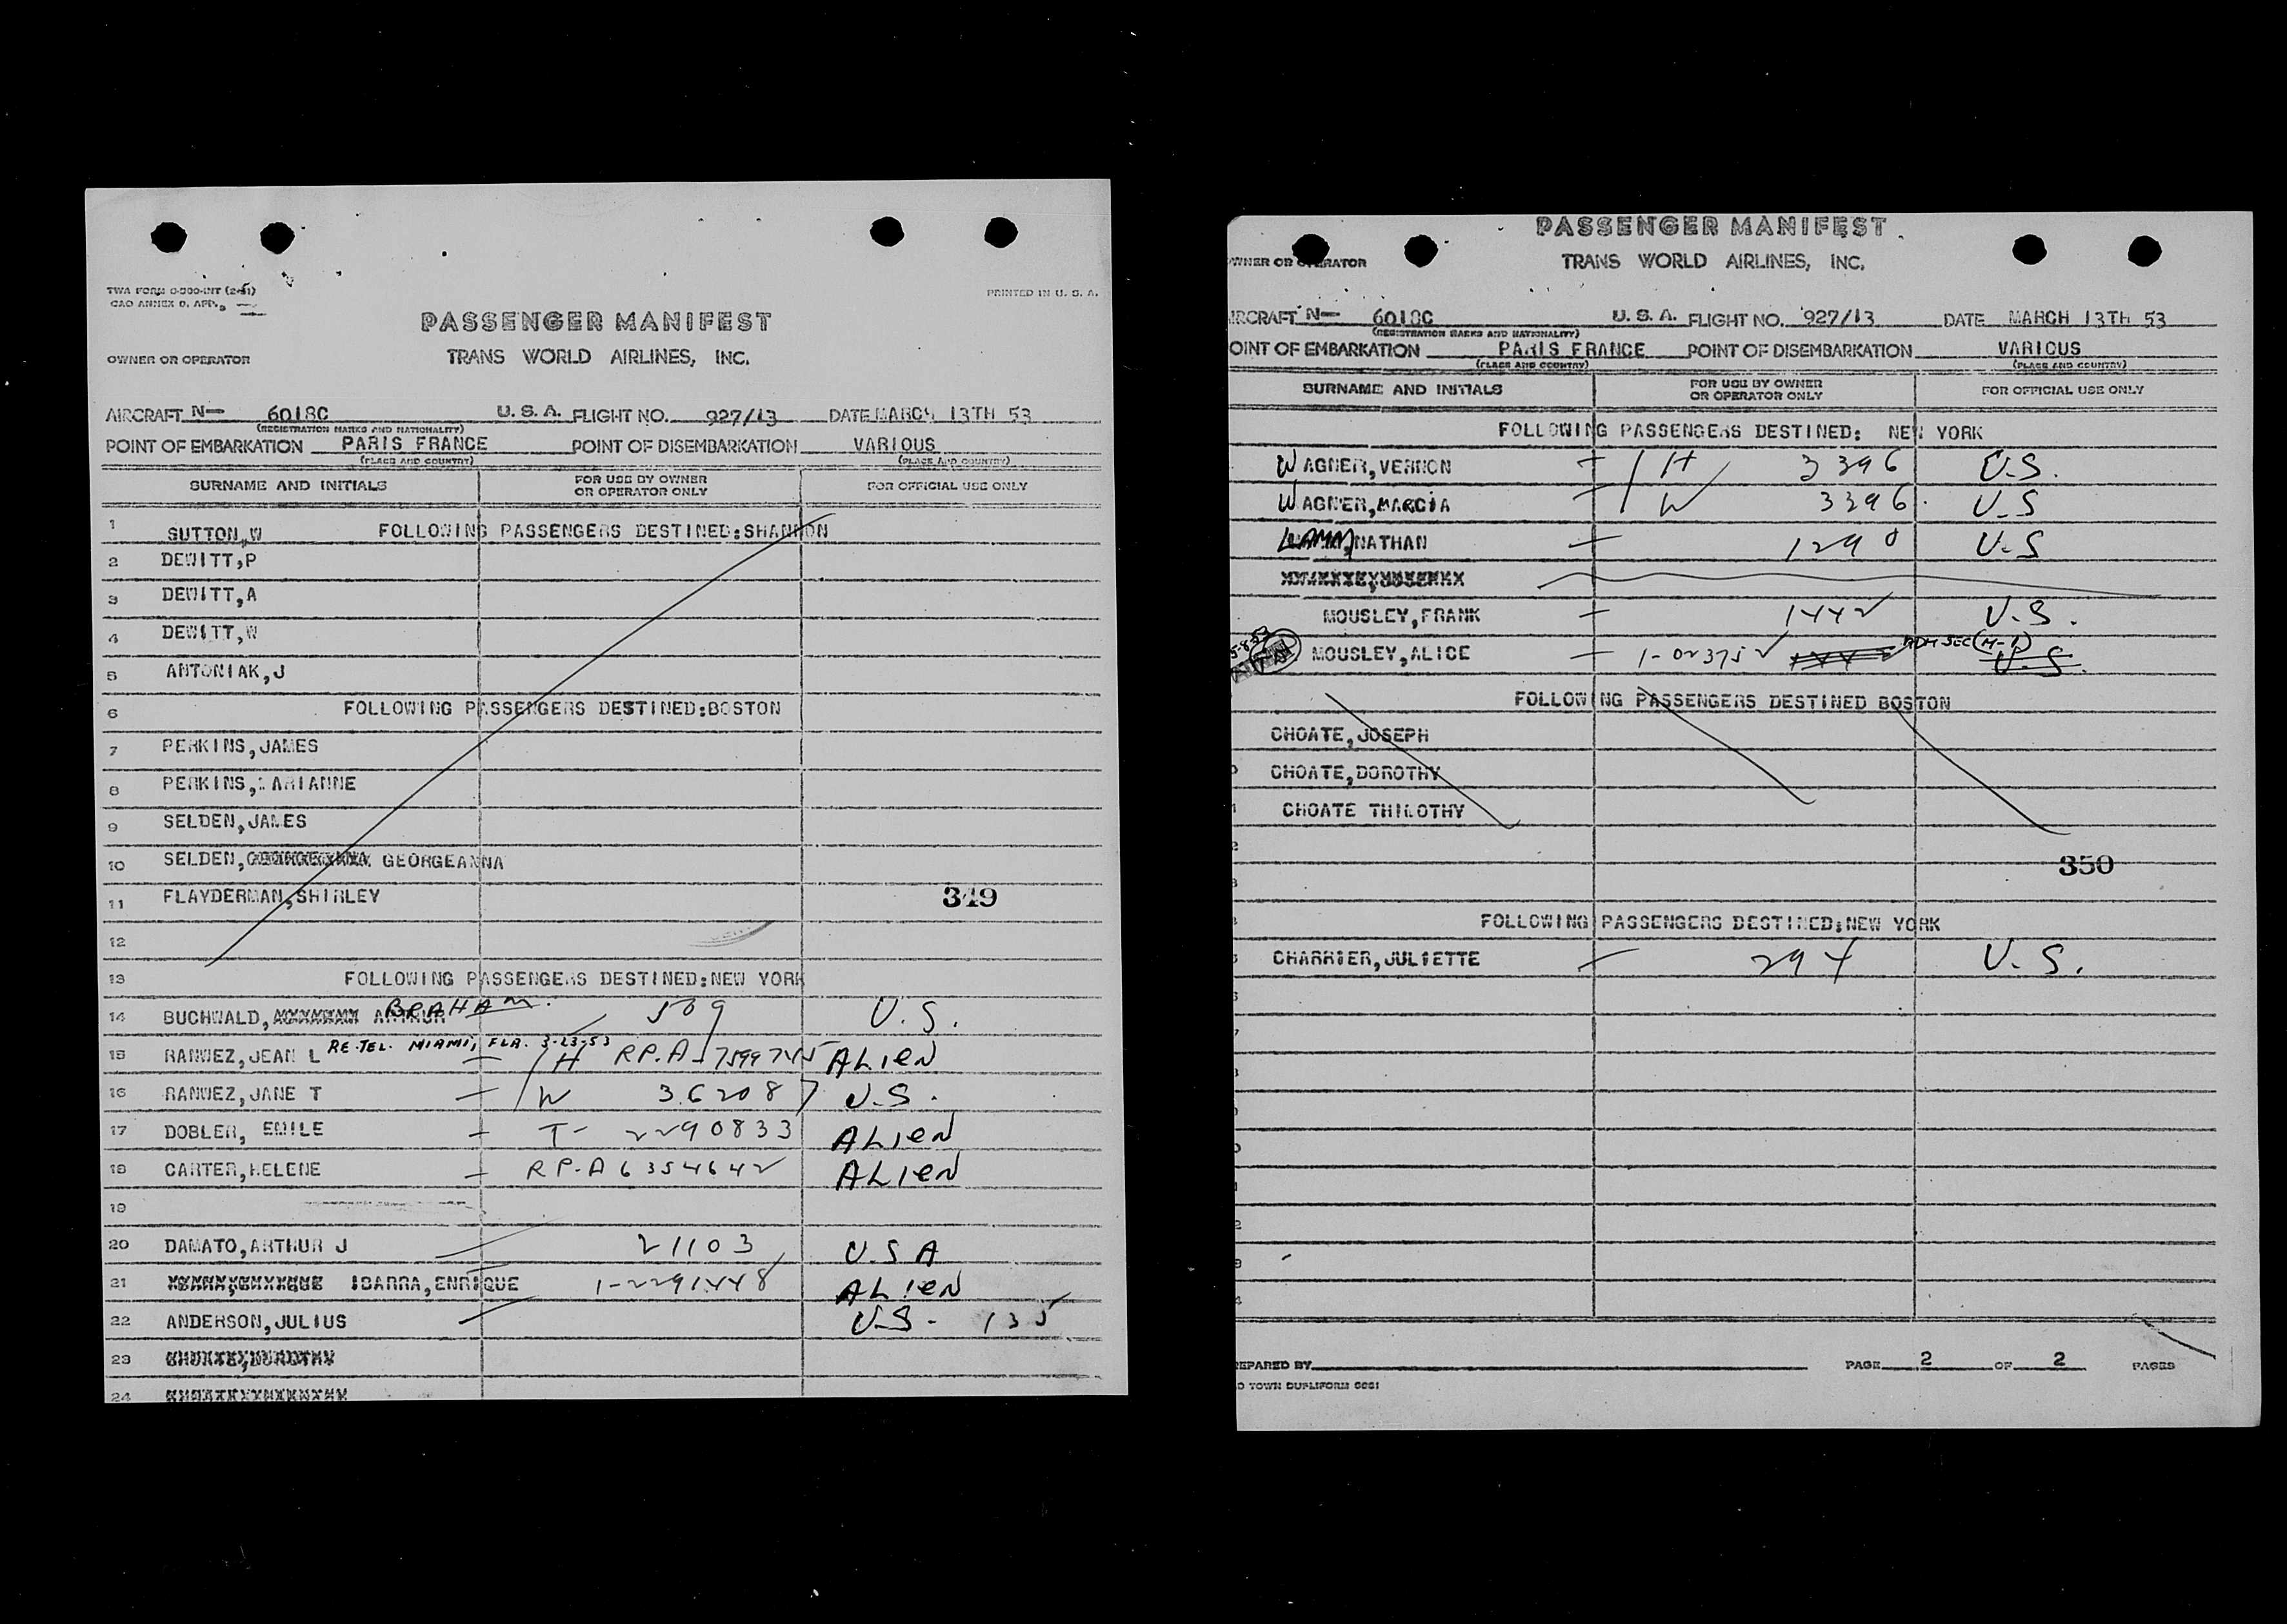 TWA FORM O-300-INT (2-51)
CAO ANNEX 9, APP.
PRINTED IN U. S. A.
PASSENGER MANIFEST
OWNER OR OPERATOR
TRANS WORLD AIRLINES, INC.
AIRCRAFT N— 6018C U. S. A. FLIGHT NO. 927/13 DATE MARCH 13TH 53
(REGISTRATION MARKS AND NATIONALITY)
POINT OF EMBARKATION PARIS FRANCE POINT OF DISEMBARKATION VARIOUS
(PLACE AND COUNTRY) (PLACE AND COUNTRY)
SURNAME AND INITIALS FOR USE BY OWNER OR OPERATOR ONLY FOR OFFICIAL USE ONLY
1 SUTTON,W FOLLOWING PASSENGERS DESTINED:SHANNON
2 DEWITT,P
3 DEWITT,A
4 DEWITT,W
5 ANTONIAK,J
6 FOLLOWING PASSENGERS DESTINED:BOSTON
7 PERKINS,JAMES
8 PERKINS,MARIANNE
9 SELDEN,JAMES
10 SELDEN, GEORGEANNA
11 FLAYDERMAN,SHIRLEY 349
12
13 FOLLOWING PASSENGERS DESTINED:NEW YORK
14 BUCHWALD, ARTHUR BRAHAM. 509 U.S.
15 RANWEZ,JEAN L RE-TEL. MIAMI, FLA. 3-23-53 — H R.P.A-7599745 ALIEN
16 RANWEZ,JANE T — W 36208 U.S.
17 DOBLER, EMILE — T- 2290833 ALIEN
18 CARTER,HELENE — R.P-A 6354642 ALIEN
19
20 DAMATO,ARTHUR J 21103 U.S.A
21 IBARRA,ENRIQUE 1-2291448 ALIEN
22 ANDERSON,JULIUS U.S. 135
23
24
PASSENGER MANIFEST
WNER OR OPERATOR TRANS WORLD AIRLINES, INC.
IRCRAFT N— 6018C U. S. A. FLIGHT NO. 927/13 DATE MARCH 13TH 53
(REGISTRATION MARKS AND NATIONALITY)
OINT OF EMBARKATION PARIS FRANCE POINT OF DISEMBARKATION VARIOUS
(PLACE AND COUNTRY) (PLACE AND COUNTRY)
SURNAME AND INITIALS FOR USE BY OWNER OR OPERATOR ONLY FOR OFFICIAL USE ONLY
FOLLOWING PASSENGERS DESTINED: NEW YORK
WAGNER,VERNON — H 3396 U.S.
WAGNER,MARCIA — W 3396. U.S
LAMM,NATHAN — 1290 U.S
MOUSLEY,FRANK — 1442 U.S.
5-8-53 MOUSLEY,ALICE — 1-023752 ADM SEC(M-1) U.S.
FOLLOWING PASSENGERS DESTINED BOSTON
CHOATE,JOSEPH
CHOATE,DOROTHY
CHOATE THIMOTHY
350
FOLLOWING PASSENGERS DESTINED:NEW YORK
CHARRIER,JULIETTE — 294 U.S.
EPARED BY PAGE 2 OF 2 PAGES
O TOWN DUPLIFORM 6081